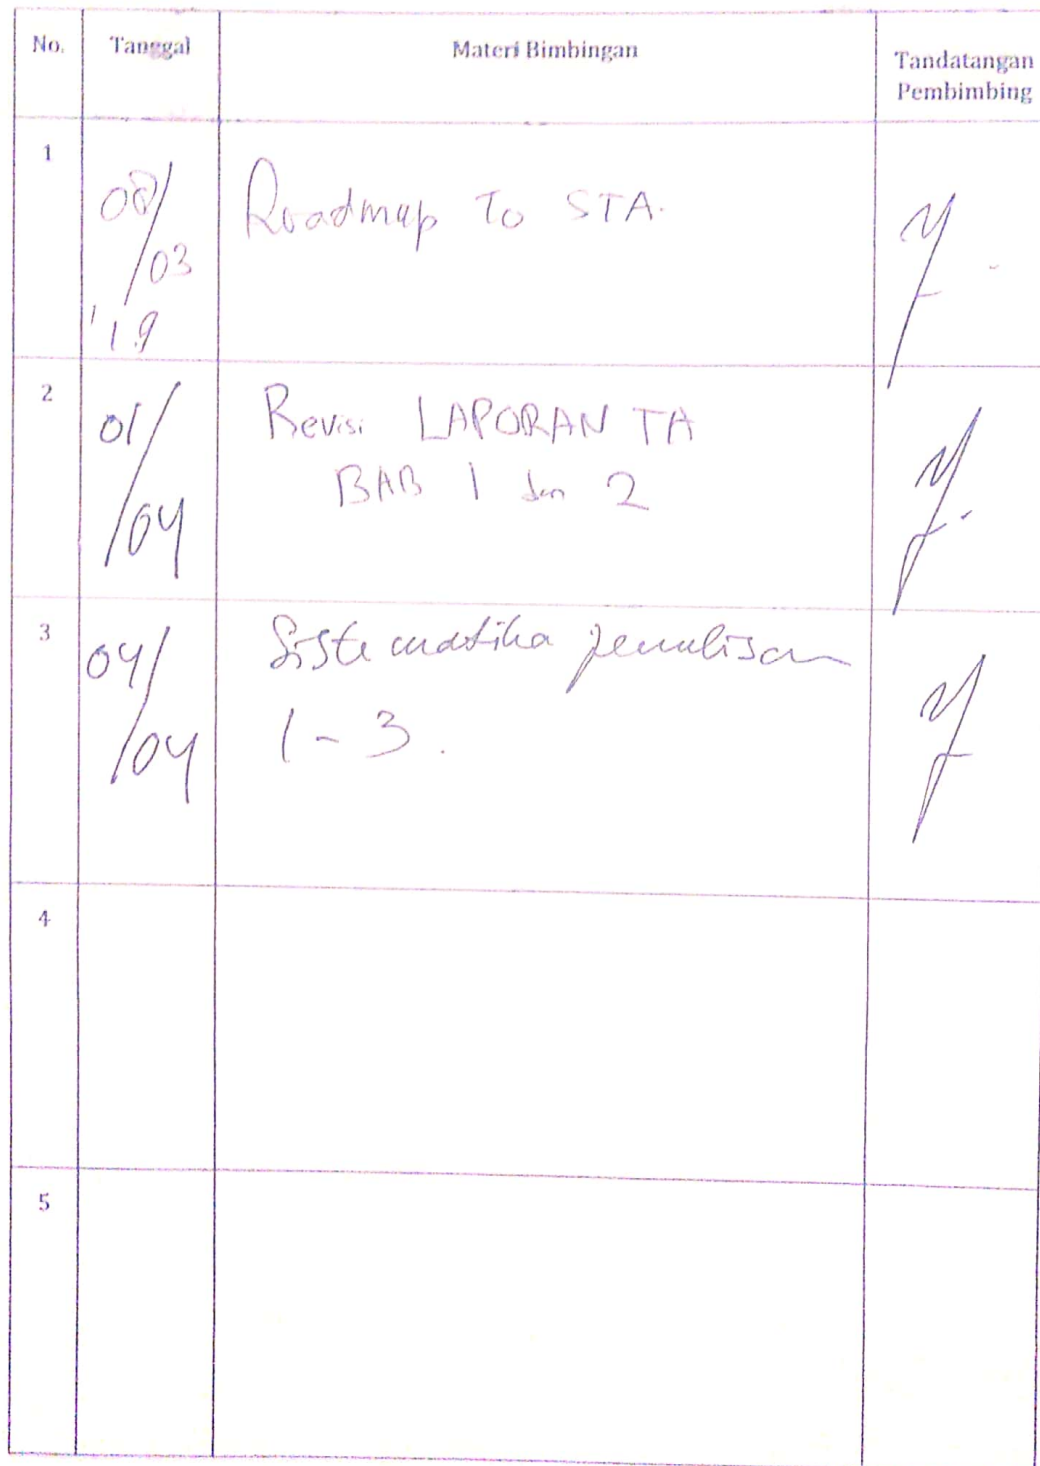 No. Tanggal Materi Bimbingan Tandatangan
Pembimbing
1
08/
03
'19
Roadmap To STA.
2
01/
04
Revisi LAPORAN TA
BAB 1 dan 2
3
04/
04
Sistematika penulisan
1 - 3.
4
5